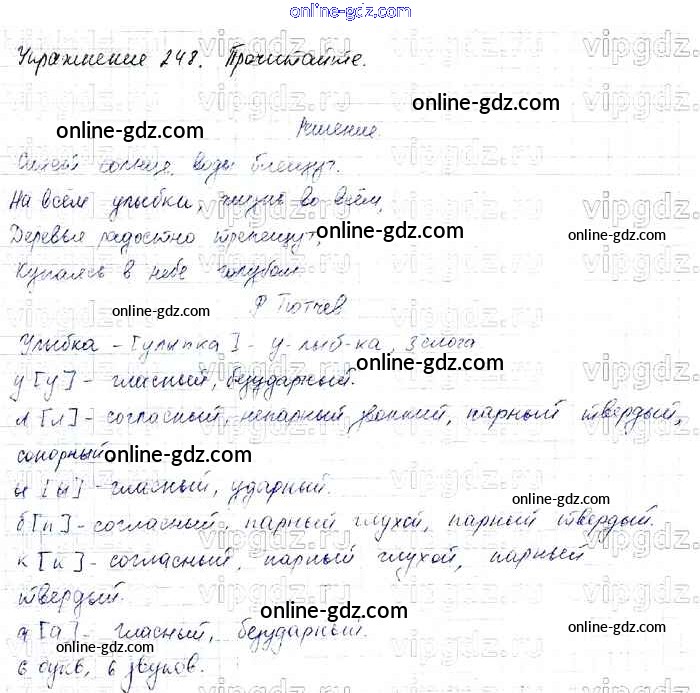 online-gdz.com
Упражнение 248. Прочитайте.
vipgdz
online-gdz.com
Решение.
Сияет солнце, воды блещут.
На всём улыбка, жизнь во всём,
Деревья радостно трепещут,
online-gdz.com
Купаясь в небе голубом.
Ф Тютчев
online-gdz.com
online-gdz.com
Улыбка - [улыпка] - у-лыб-ка, 3 слога
у [у] - гласный, безударный.
online-gdz.com
л [л] - согласный, непарный звонкий, парный твердый,
сонорный
online-gdz.com
ы [ы] - гласный, ударный.
online-gdz.com
б [п] - согласный, парный глухой, парный твердый.
к [к] - согласный, парный глухой, парный
твердый.
online-gdz.com
а [а] - гласный, безударный.
online-gdz.com
6 букв, 6 звуков.